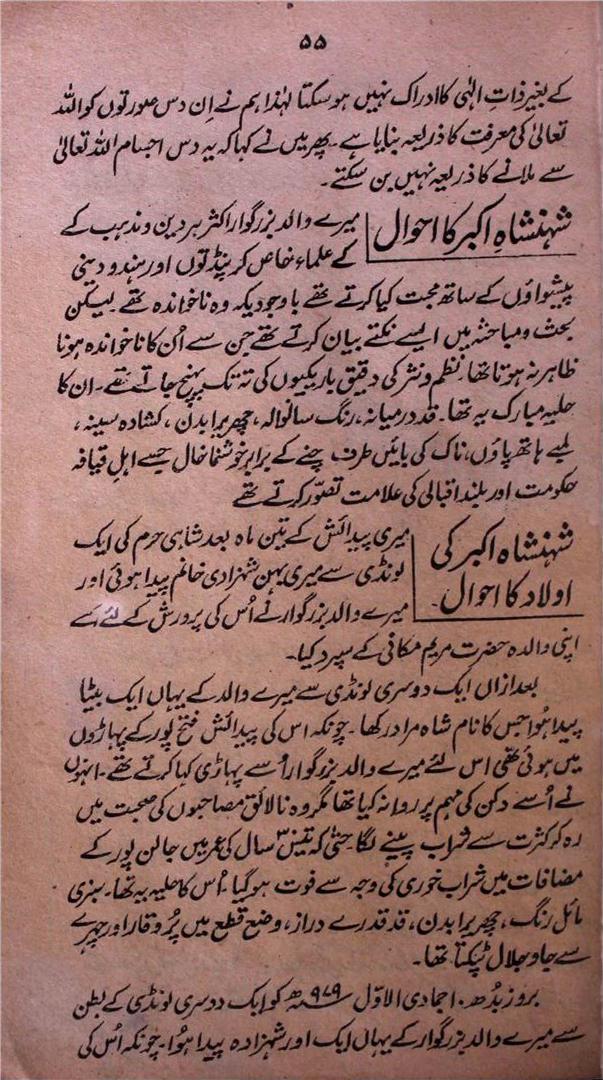 ۵۵
کے بغیر ذاتِ الٰہی کا ادراک نہیں ہو سکتا لہٰذا ہم نے اِن دس صورتوں کو اللہ
تعالیٰ کی معرفت کا ذریعہ بنایا ہے۔ پھر میں نے کہا کہ یہ دس اجسام اللہ تعالیٰ
سے ملانے کا ذریعہ نہیں بن سکتے۔
شہنشاہِ اکبر کا احوال
میرے والد بزرگوار اکثر ہر دین و مذہب کے
کے علماء خاص کر پنڈتوں اور ہندو دینی
پیشواؤں کے ساتھ محبت کیا کرتے تھے باوجودیکہ وہ ناخواندہ تھے۔ لیکن
بحث و مباحثہ میں ایسے نکتے بیان کرتے تھے جن سے اُن کا ناخواندہ ہونا
ظاہر نہ ہوتا تھا۔ نظم و نثر کی دقیق باریکیوں کی تہ تک پہنچ جاتے تھے۔ ان کا
حلیہ مبارک یہ تھا۔ قد درمیانہ، رنگ سانولا، چھریرا بدن، کشادہ سینہ،
لمبے ہاتھ پاؤں، ناک کی بائیں طرف چنے کے برابر خوشنما خال جسے اہلِ قیافہ
حکومت اور بلند اقبالی کی علامت تصوّر کرتے تھے
شہنشاہ اکبر کی
اولاد کا احوال۔
میری پیدائش کے تین ماہ بعد شاہی حرم کی ایک
لونڈی سے میری بہن شہزادی خانم پیدا ہوئی اور
میرے والد بزرگوار نے اُس کی پرورش کے لئے اسے
اپنی والدہ حضرت مریم مکانی کے سپرد کیا۔
بعد ازاں ایک دوسری لونڈی سے میرے والد کے یہاں ایک بیٹا
پیدا ہُوا جس کا نام شاہ مراد رکھا۔ چونکہ اس کی پیدائش فتح پور کے پہاڑوں
میں ہوئی تھی اس لئے میرے والد بزرگوار اُسے پہاڑی کہا کرتے تھے۔ انہوں
نے اُسے دکن کی مہم پر روانہ کیا تھا مگر وہ نالائق مصاحبوں کی صحبت میں
رہ کر کثرت سے شراب پینے لگا۔ حتیٰ کہ تیس۳ سال کی عمر میں جالن پور کے
مضافات میں شراب خوری کی وجہ سے فوت ہو گیا۔ اُس کا حلیہ یہ تھا۔ سبزی
مائل رنگ، چھریرا بدن، قد قدرے دراز، وضع قطع میں پُر وقار اور چہرے
سے جاہ و جلال ٹپکتا تھا۔
بروز بُدھ ۱۰ جمادی الاوّل ۹۷۹ھ کو ایک دوسری لونڈی کے بطن
سے میرے والد بزرگوار کے یہاں ایک اور شہزادہ پیدا ہُوا۔ چونکہ اُس کی